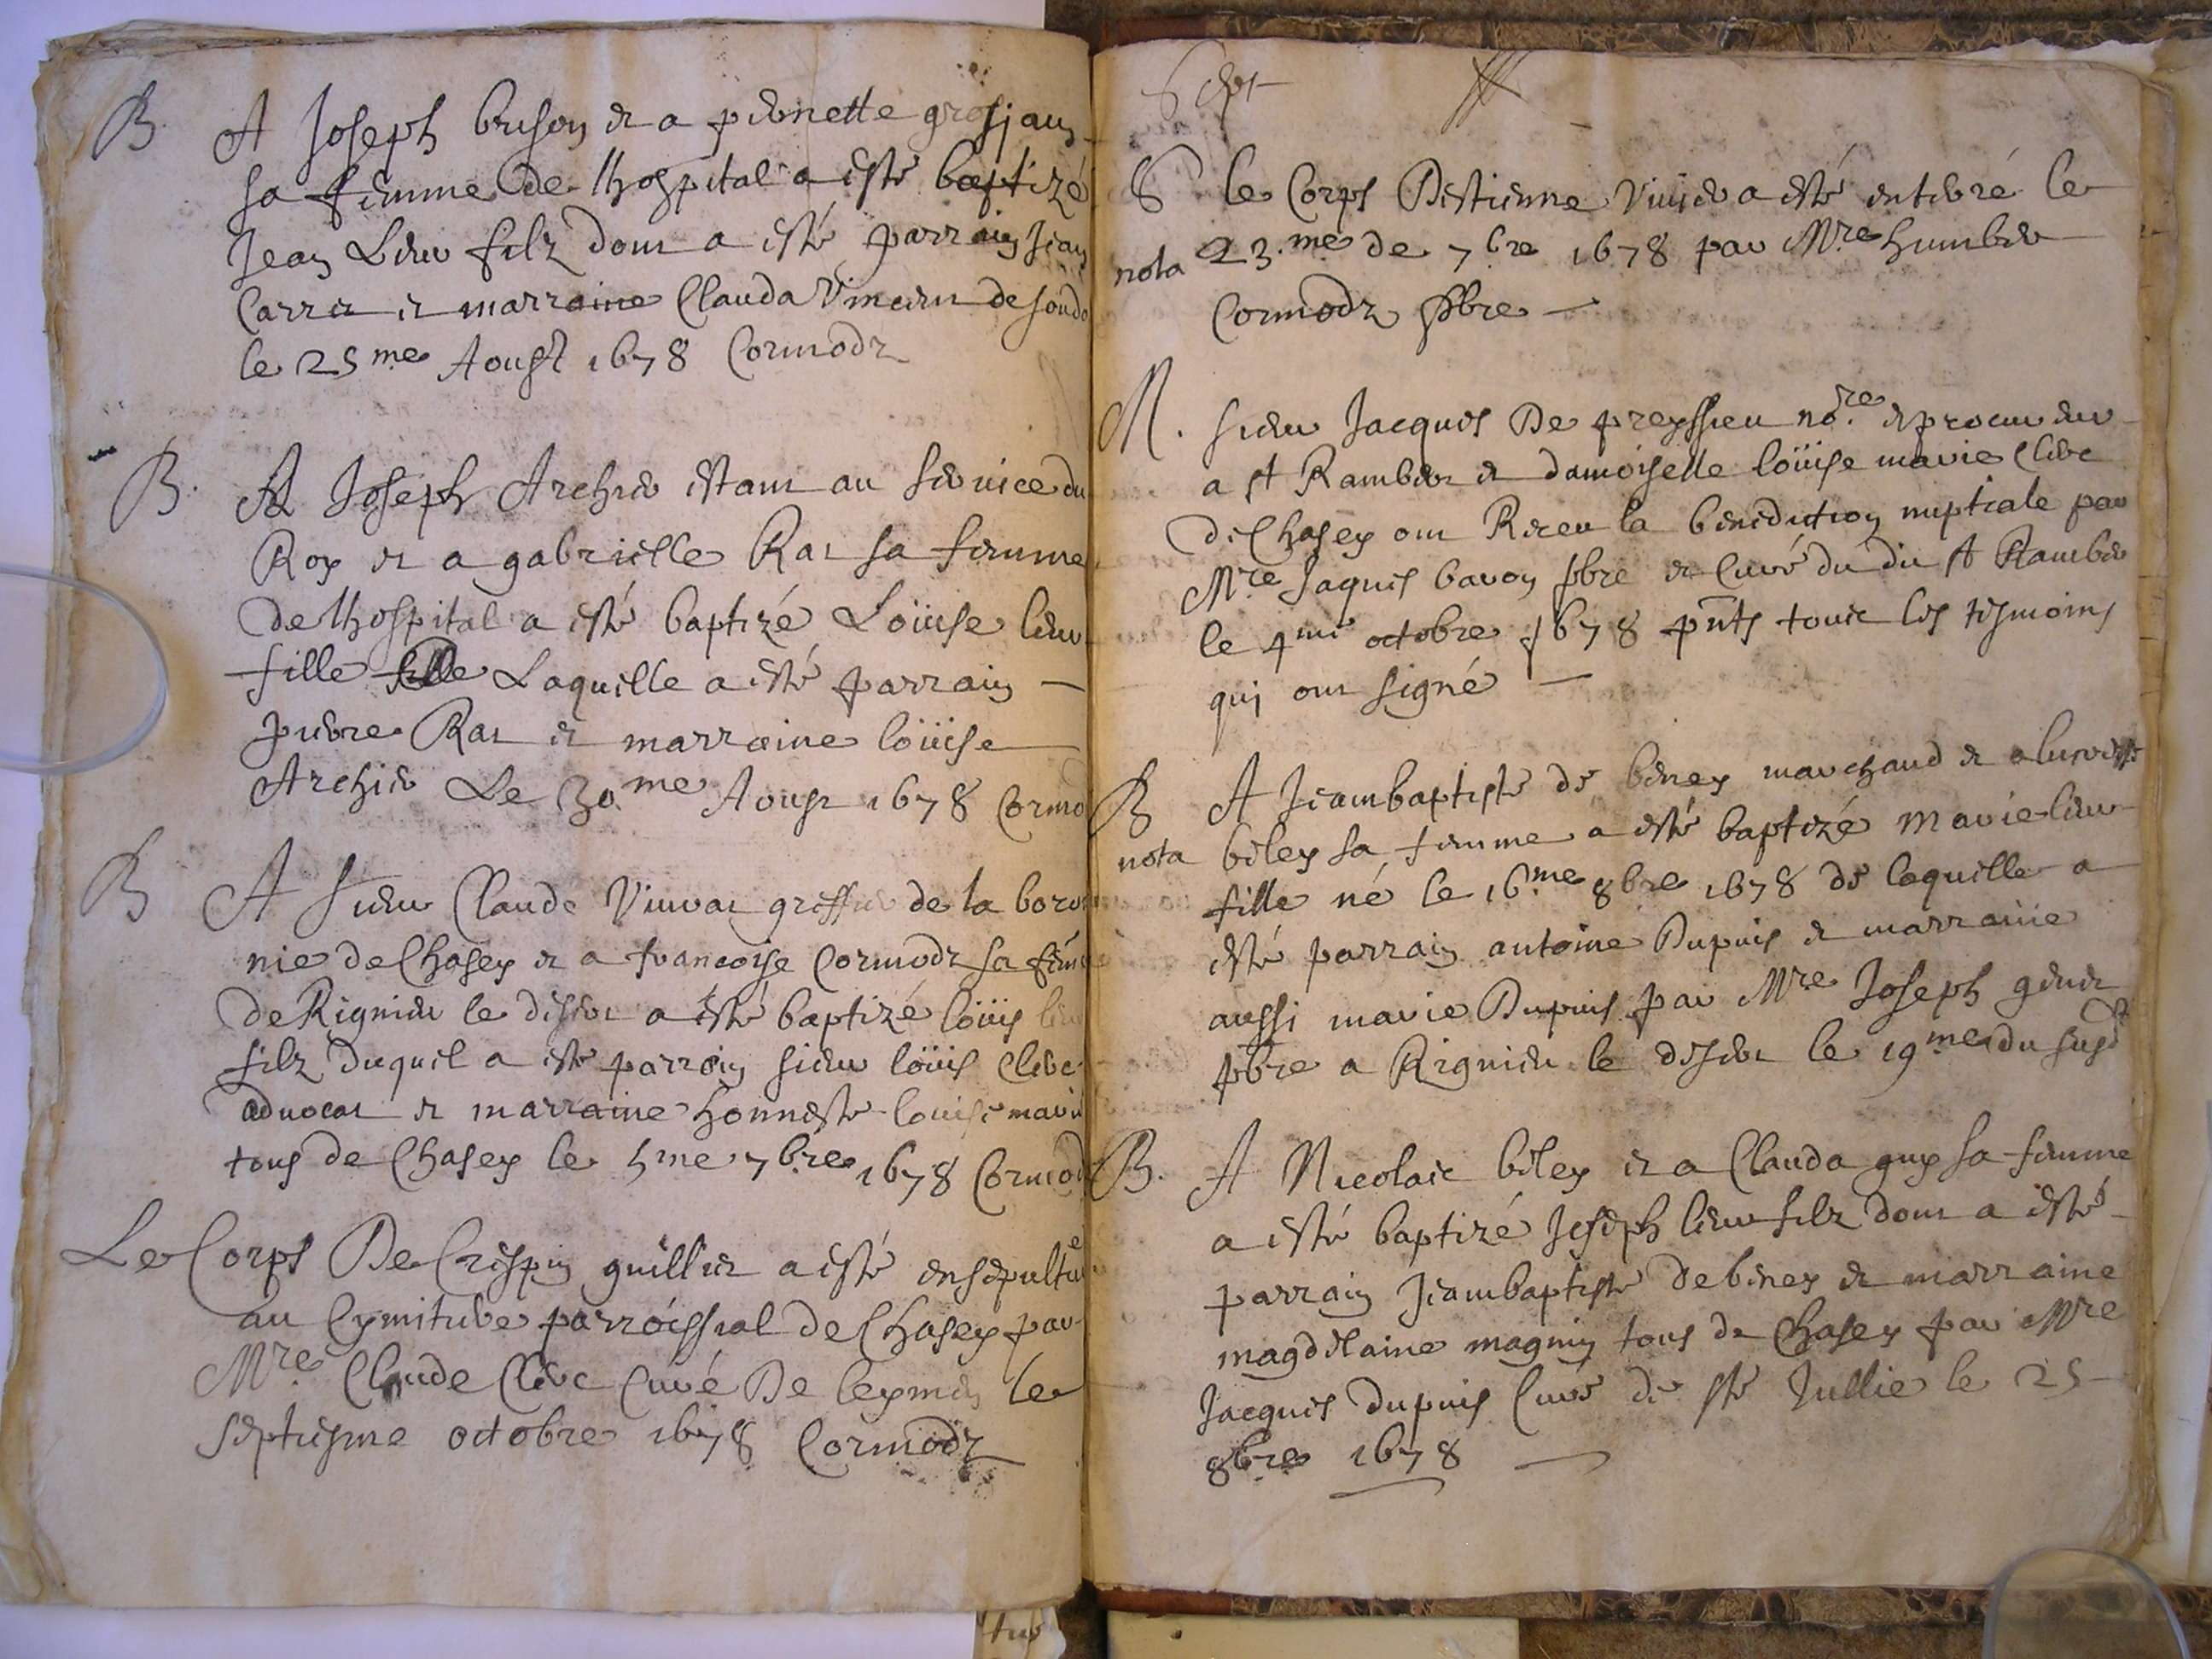 B. A Joseph brison et a pierrette grosjean
sa femme de lhospital a esté baptizé
Jean Leur filz dont a esté parrain Jean
Carrer et marraine Clauda Vincent de
le 25.me Aoust 1678 Cormodz
B. A Joseph Archier estant au service du
Roy et a gabrielle Rat sa femme
de lhospital a esté baptizé Loüise leur
fille Laquelle a esté parrain —
pierre Rat et marraine loüise
Archier Le 30.me Aoust 1678 Cormod
B A Sieur Claude Vinvat greffier de la baro
nie de Chasey et a francoise Cormodz sa fem
de Rignieu le desert a esté baptizé loüis leu
filz duquel a esté parrain sieur loüis Clerc
advocat et marraine honneste louise marie
tous de Chasey le 5me 7bre 1678 Cormod
Le Corps De Crespin guillier a esté ensepulturé
au Cymitiere parroissial de Chasey par
Mre Claude Clerc Curé De leymen le
septiesme octobre 1678 Cormodz
Sept
S le Corps Destienne Vivier a esté enterré le
nota 23.me de 7bre 1678 par Mre humber
Cormodz pbre —
M. sieur Jacques De preyssieu nore. et procureur
a st Rambert et damoiselle loüise marie Clerc
de Chasey ont Receu la benediction nuptiale par
Mre Jaques bavoy pbre et Curé du dit st Ramber
le 4me octobre 1678 pnts tous les tesmoins
qui ont signé —
B A Jeambaptiste de beney marchand et a
nota beley sa femme a esté baptizé marie leur
fille né le 16me 8bre 1678 de laquelle a
esté parrain antoine Dupuis et marraine
aussi marie Dupuis par Mre Joseph
pbre a Rignieu le desert le 19me du susdt
B. A Nicolas beley et a Clauda guy sa femme
a esté baptizé Joseph leur filz dont a esté
parrain Jeambaptiste de beney et marraine
magdelaine magnin tous de Chasey par Mre
Jacques dupuis Curé de ste Jullie le 25
8bre 1678 —